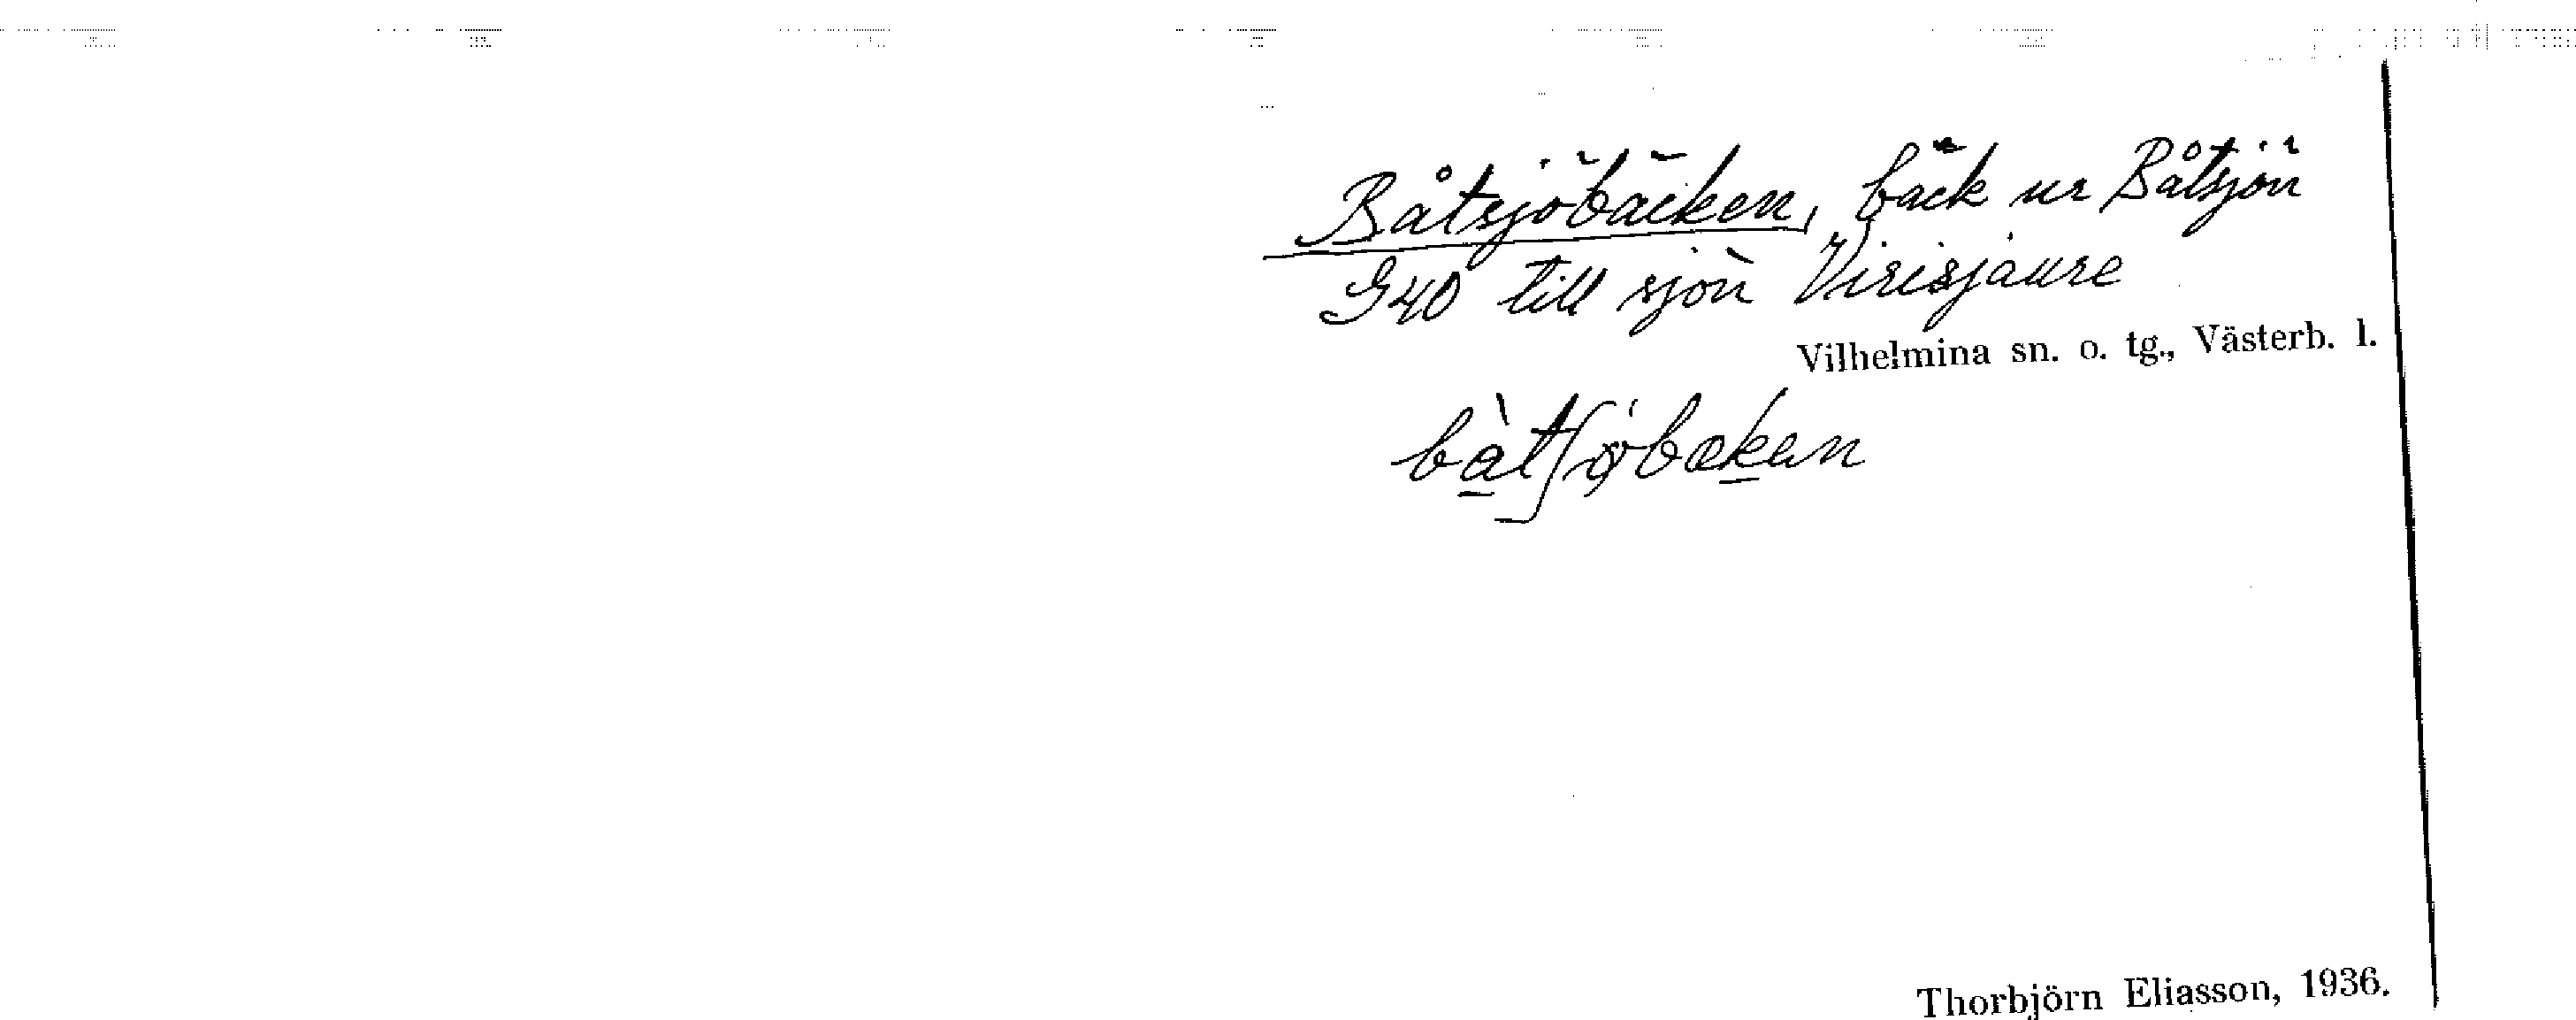 Båtsjöbäcken, bäck ur Båtsjön
G40 till sjön Virisjaure
Vilhelmina sn. o. tg., Västerb. l.
Thorbjörn Eliasson, 1936.